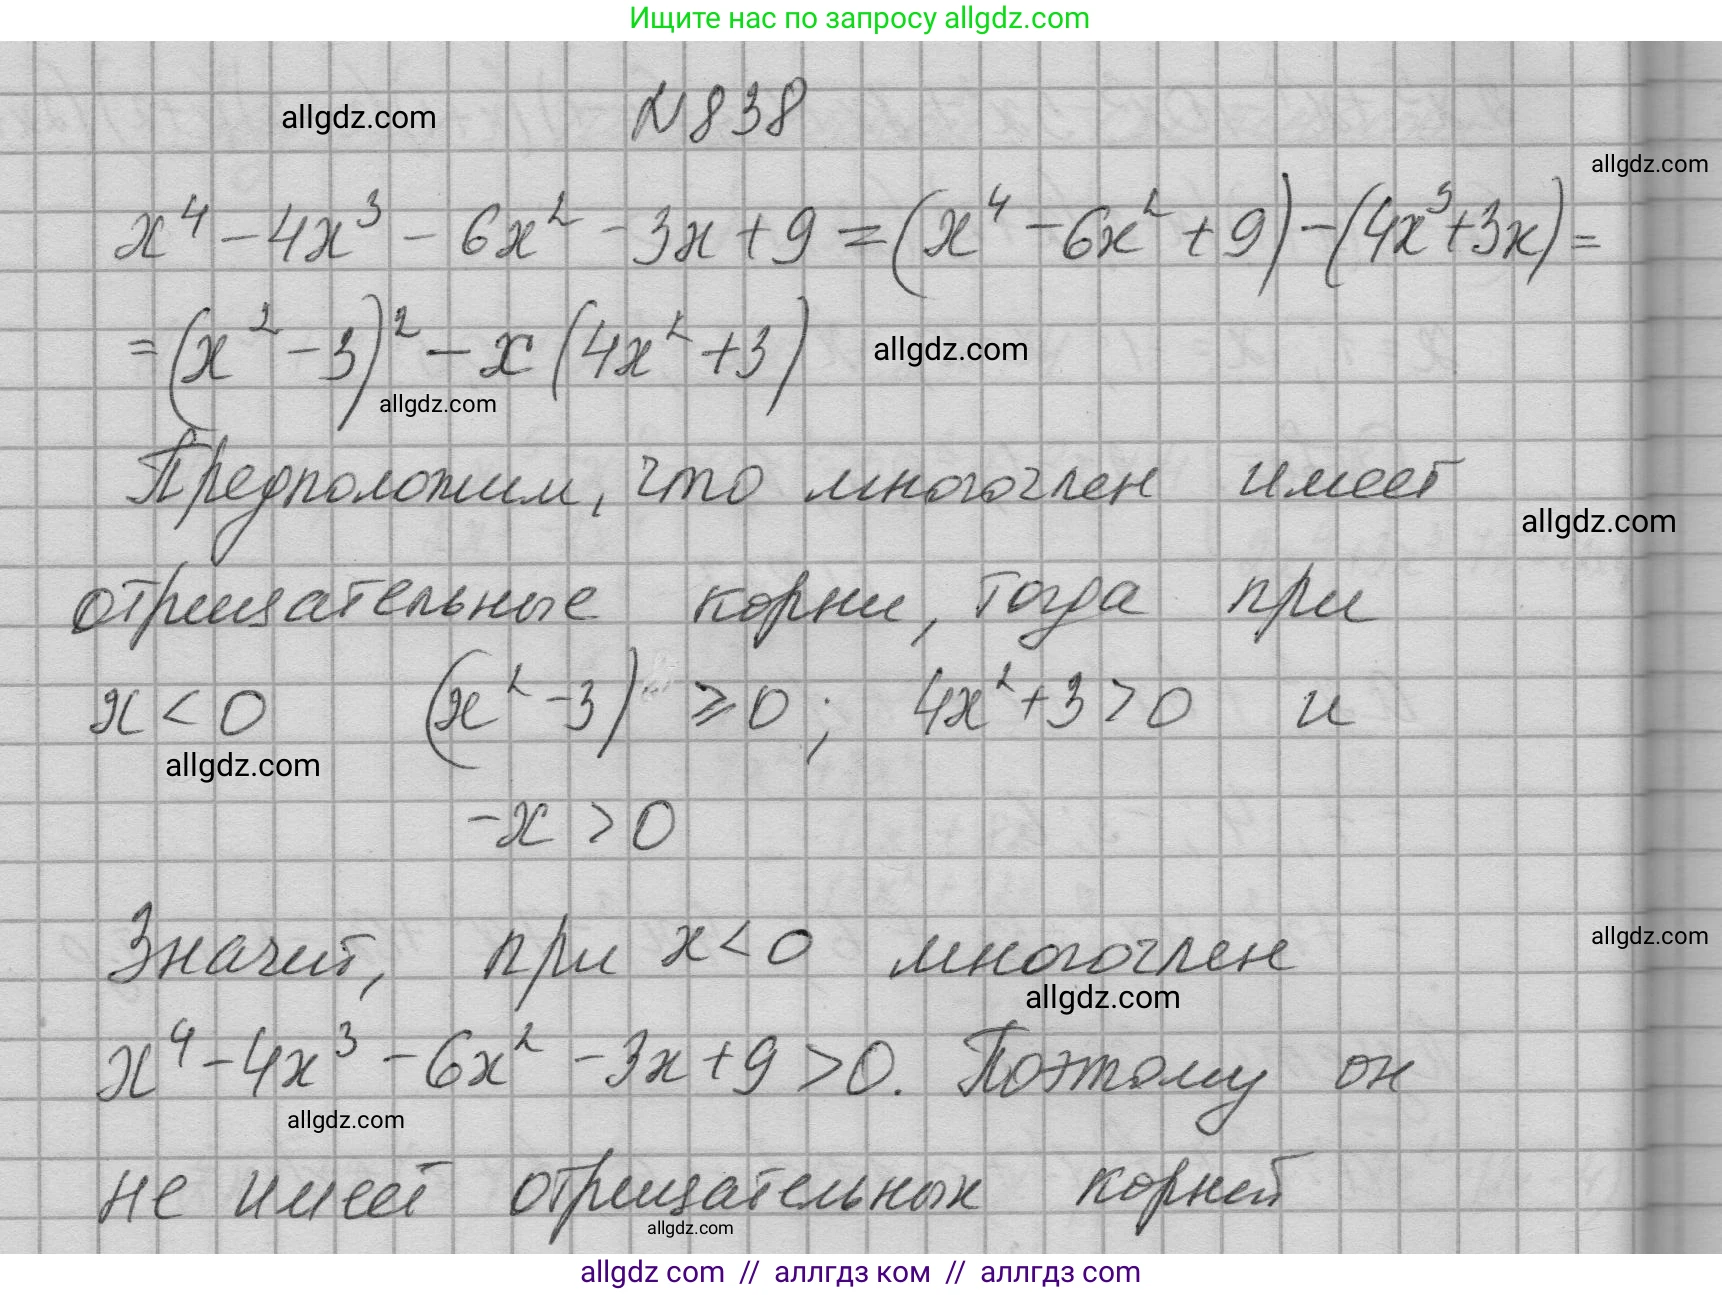 Ищите нас по запросу allgdz.com
allgdz.com
№838
allgdz.com
x⁴ - 4x³ - 6x² - 3x + 9 = (x⁴ - 6x² + 9) - (4x³ + 3x) =
= (x² - 3)² - x (4x² + 3)
allgdz.com
allgdz.com
Предположим, что многочлен имеет
allgdz.com
отрицательные корни, тогда при
x < 0 (x² - 3) ≥ 0; 4x² + 3 > 0 и
allgdz.com
-x > 0
Значит, при x < 0 многочлен
allgdz.com
allgdz.com
x⁴ - 4x³ - 6x² - 3x + 9 > 0. Поэтому он
allgdz.com
не имеет отрицательных корней
allgdz.com
allgdz com // аллгдз ком // аллгдз com